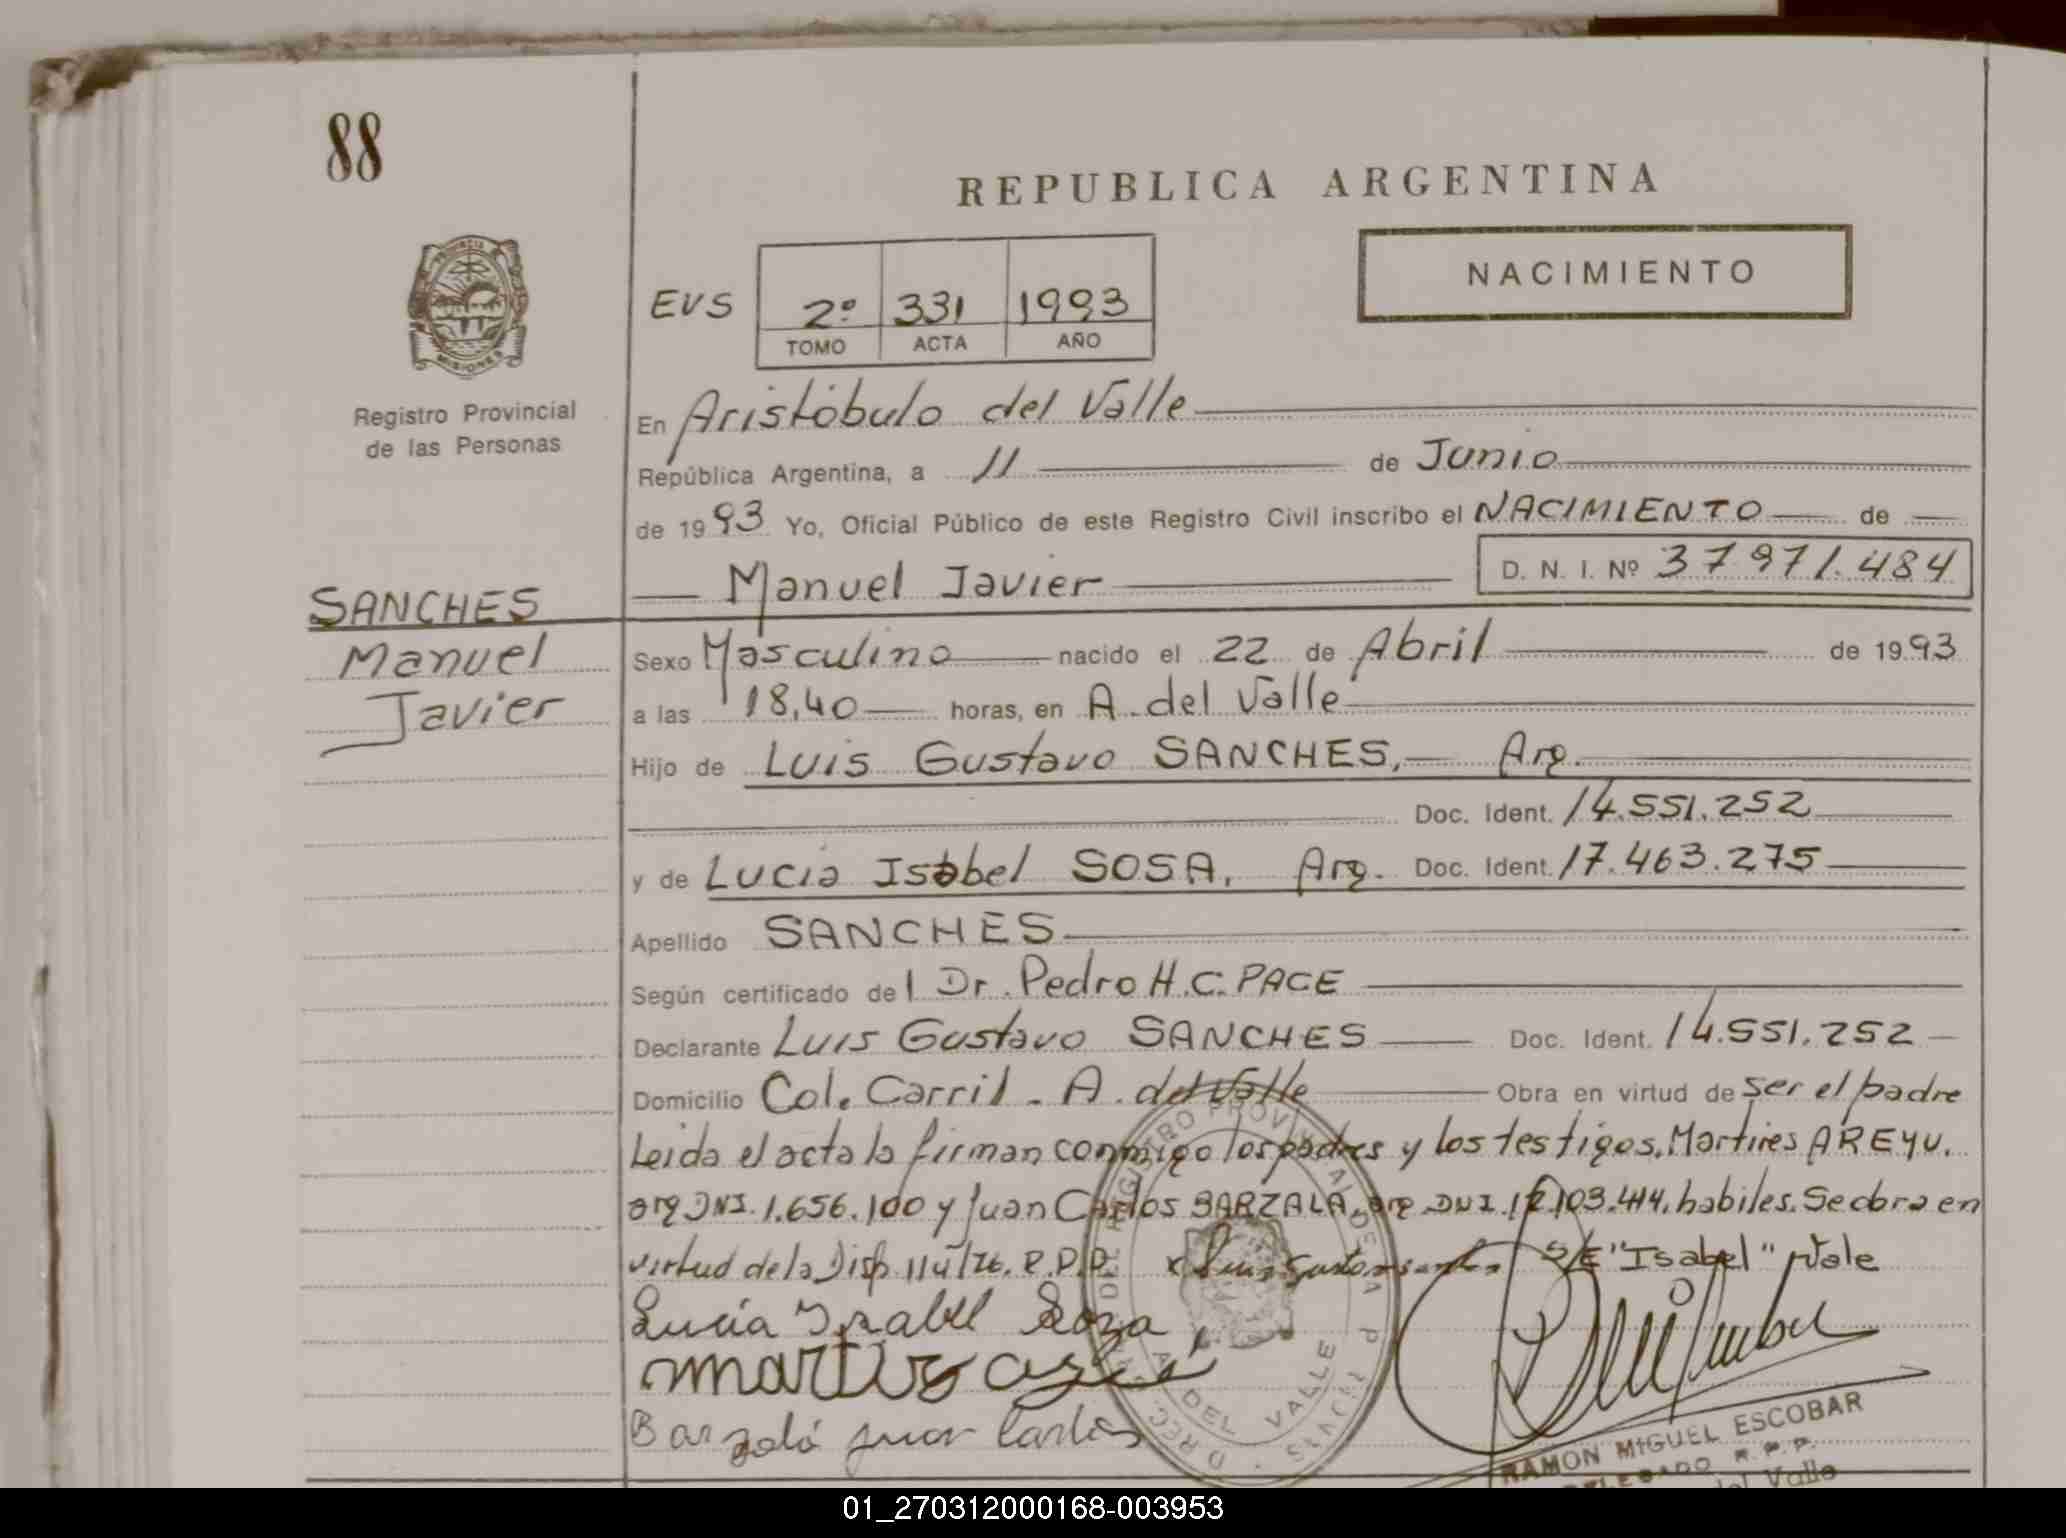 88
REPUBLICA ARGENTINA
NACIMIENTO
EVS 2º 331 1993
TOMO ACTA AÑO
PROVINCIA
MISIONES
Registro Provincial
de las Personas
En Aristóbulo del Valle
República Argentina, a 11 de Junio
de 1993 Yo, Oficial Público de este Registro Civil inscribo el NACIMIENTO de
Manuel Javier D. N. I. Nº 37971.484
SANCHES
Manuel
Javier
Sexo Masculino nacido el 22 de Abril de 1993
a las 18,40 horas, en A. del Valle
Hijo de Luis Gustavo SANCHES, Arg.
Doc. Ident. 14.551.252
y de Lucia Isabel SOSA, Arg. Doc. Ident. 17.463.275
Apellido SANCHES
Según certificado del Dr. Pedro H.C. PACE
Declarante Luis Gustavo SANCHES Doc. Ident. 14.551.252
Domicilio Col. Carril - A. del Valle Obra en virtud de ser el padre
Leida el acta la firman conmigo los padres y los testigos, Martires AREYU.
arg DNI. 1.656.100 y Juan Carlos BARZALA, arg. DNI. 103.414, habiles. Se obra en
virtud de la Disp. 114/76. R.P.P. S/E "Isabel" Vale
Lucia Ysabel Soza
Barzalá Juan Carlos
REGISTRO PROVINCIAL DE LAS P
A. DEL VALLE
RAMON MIGUEL ESCOBAR
DELEGADO R.P.P.
del Valle
01_270312000168-003953